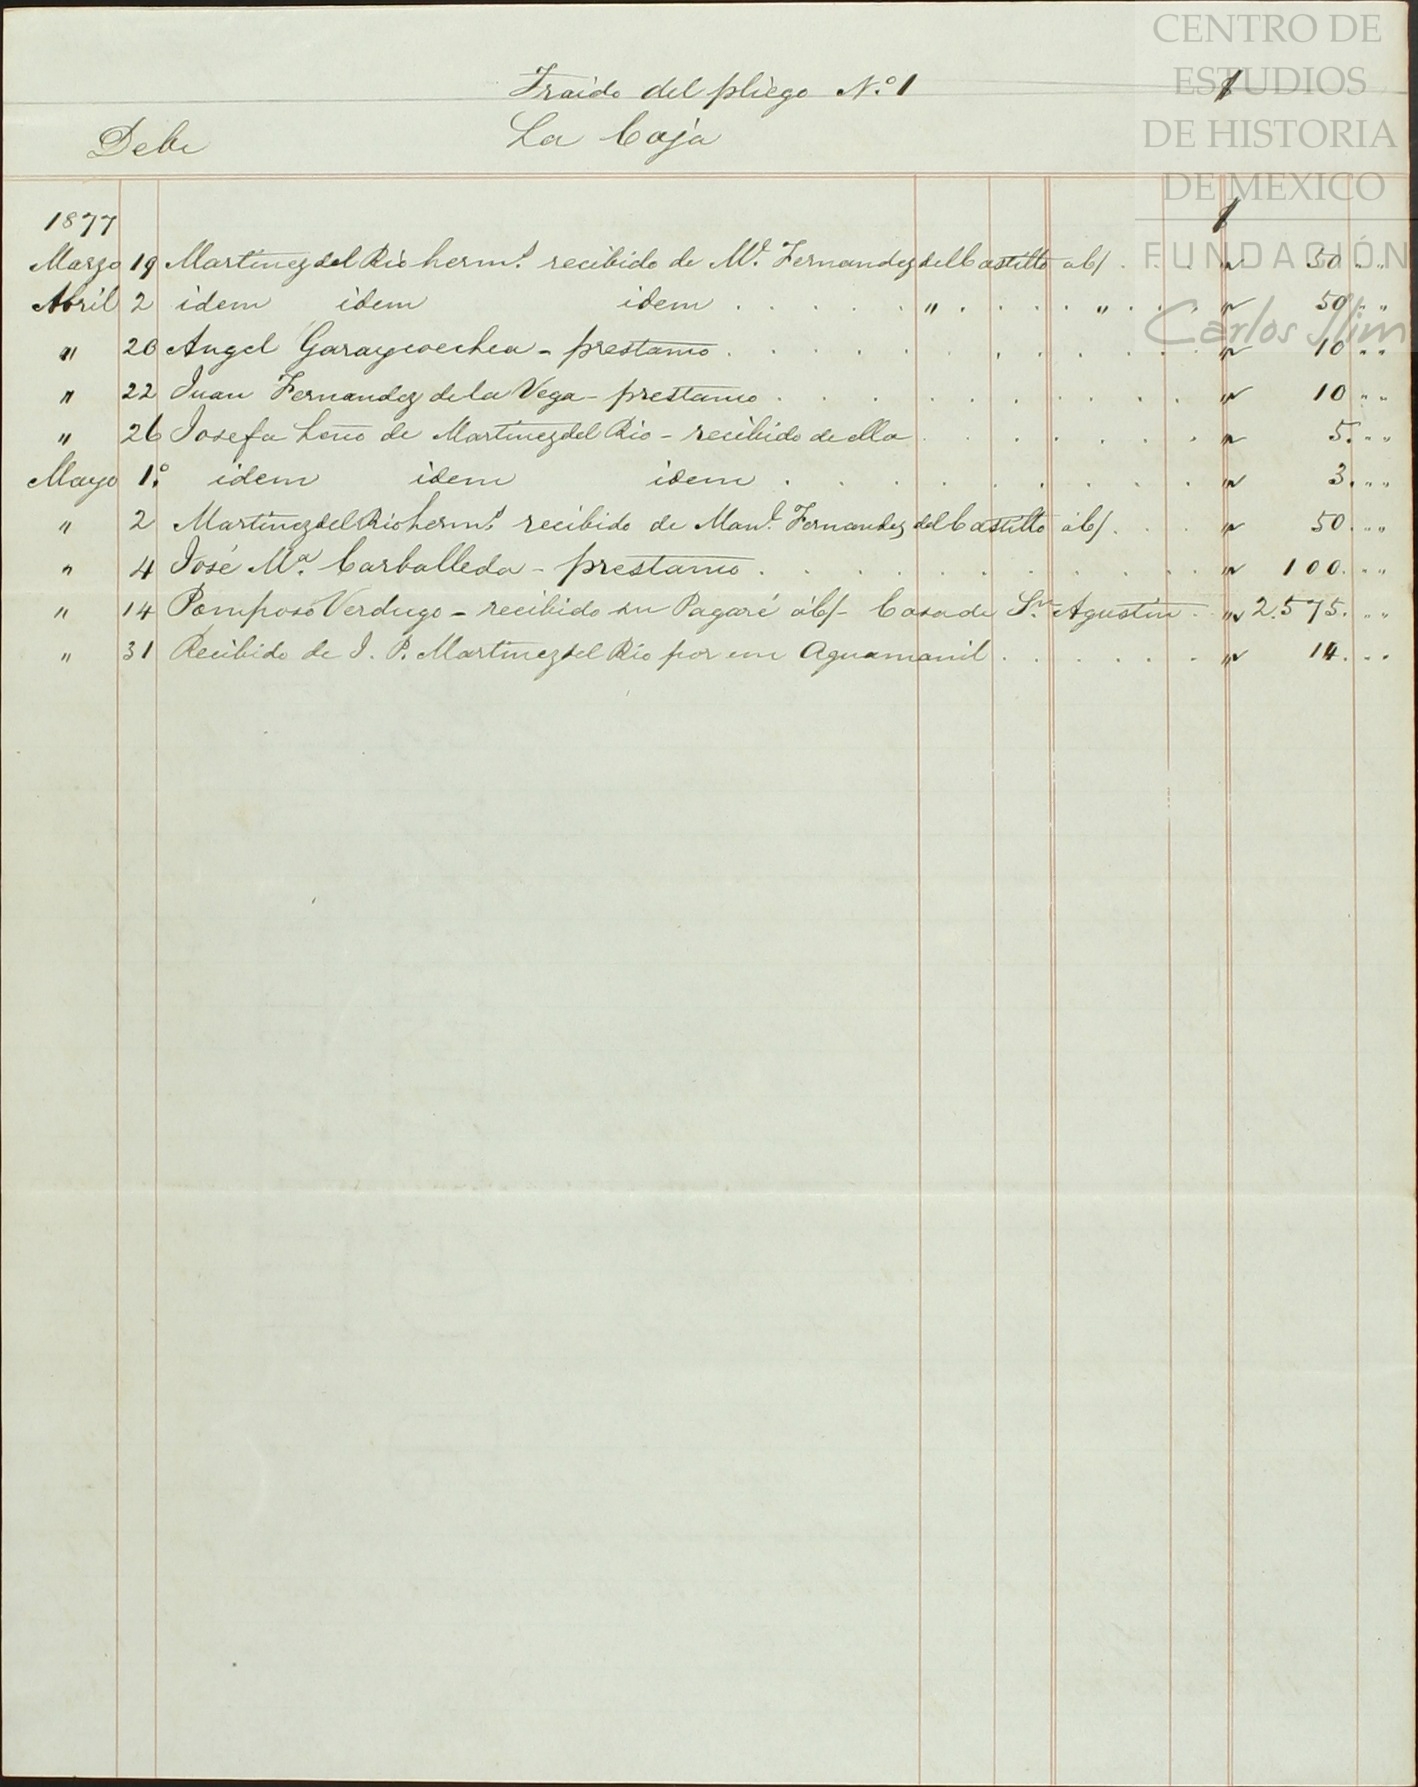 CENTRO DE
ESTUDIOS
DE HISTORIA
DE MEXICO
FUNDACIÓN
Carlos Slim
Traido del pliego N.º 1
Debe La Caja
1877
Marzo 19 Martinez del Rio herm.s recibido de M.l Fernandez del Castillo á c/ . . . " 50 " "
Abril 2 idem idem idem . . . . . " . . . . " . . . " 50 " "
" 20 Angel Garaycoechea - prestamo . . . . . . . . . . " 10 " "
" 22 Juan Fernandez de la Vega - prestamo . . . . . . . . . . " 10 " "
" 26 Josefa de Martinez del Rio - recibido de ella . . . . . . . " 5. " "
Mayo 1.º idem idem idem . . . . . . . . . " 3. " "
" 2 Martinez del Rio herm.s recibido de Man.l Fernandez del Castillo á c/ . . . " 50. " "
" 4 José M.a Carballeda - prestamo . . . . . . . . . . " 100. " "
" 14 Pomposo Verdugo - recibido su Pagaré á c/ - Casa de S.n Agustin . " 2.575. " "
" 31 Recibido de J. P. Martinez del Rio por un Aguamanil . . . . . . " 14. " "